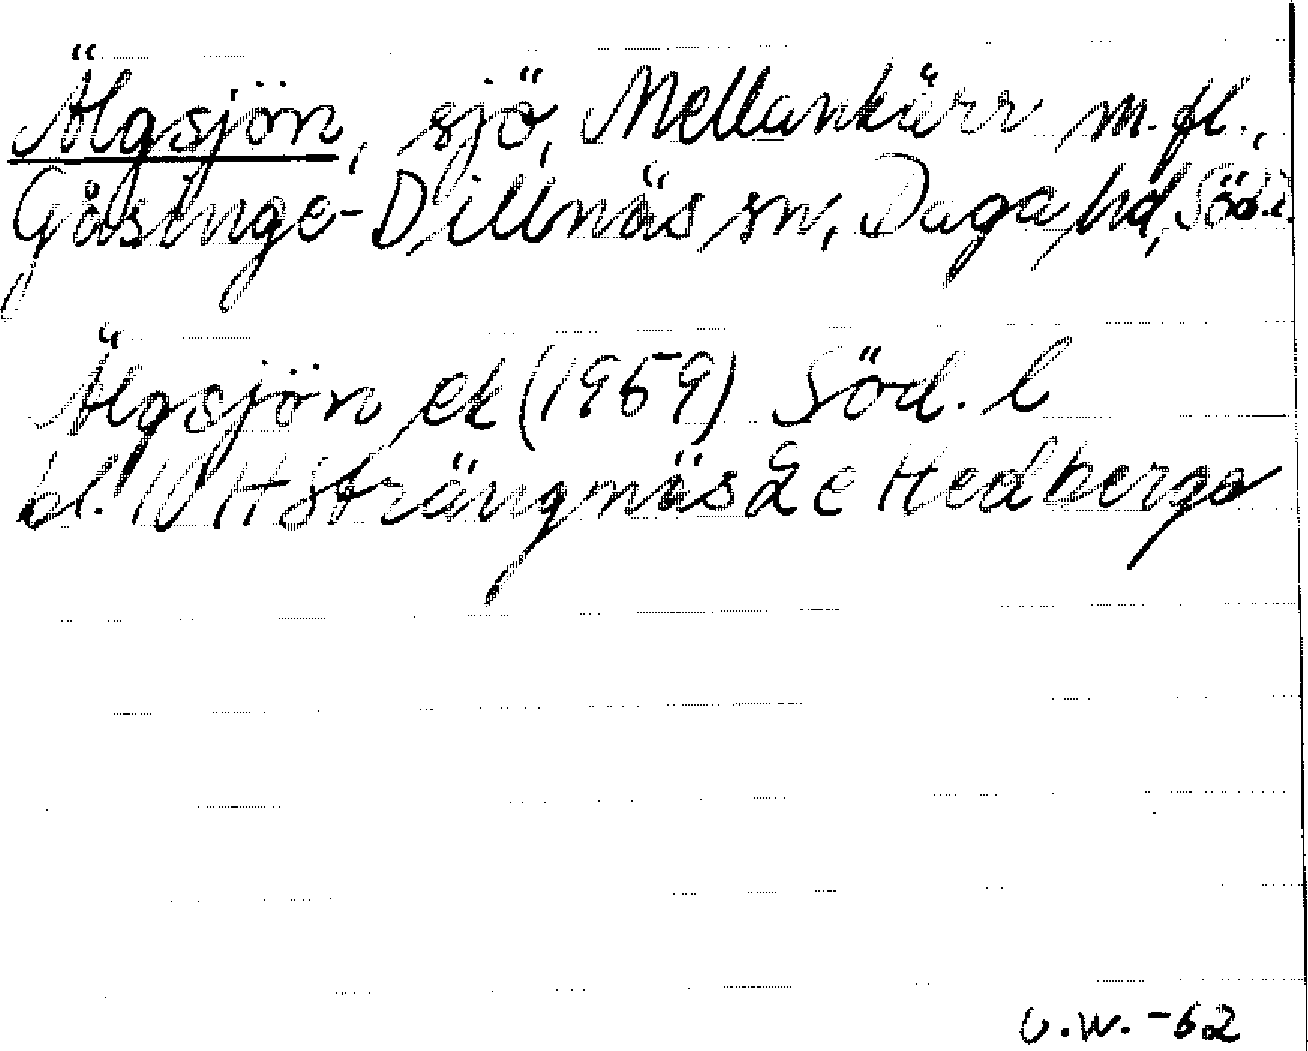 Älgsjön, sjö, Mellankärr m.fl.,
Gåsinge-Dillnäs sn, Daga hd, Söd.
Älgsjön ek (1959) Söd. l
bl. 10 H Strängnäs Hedberg
U.W. -62